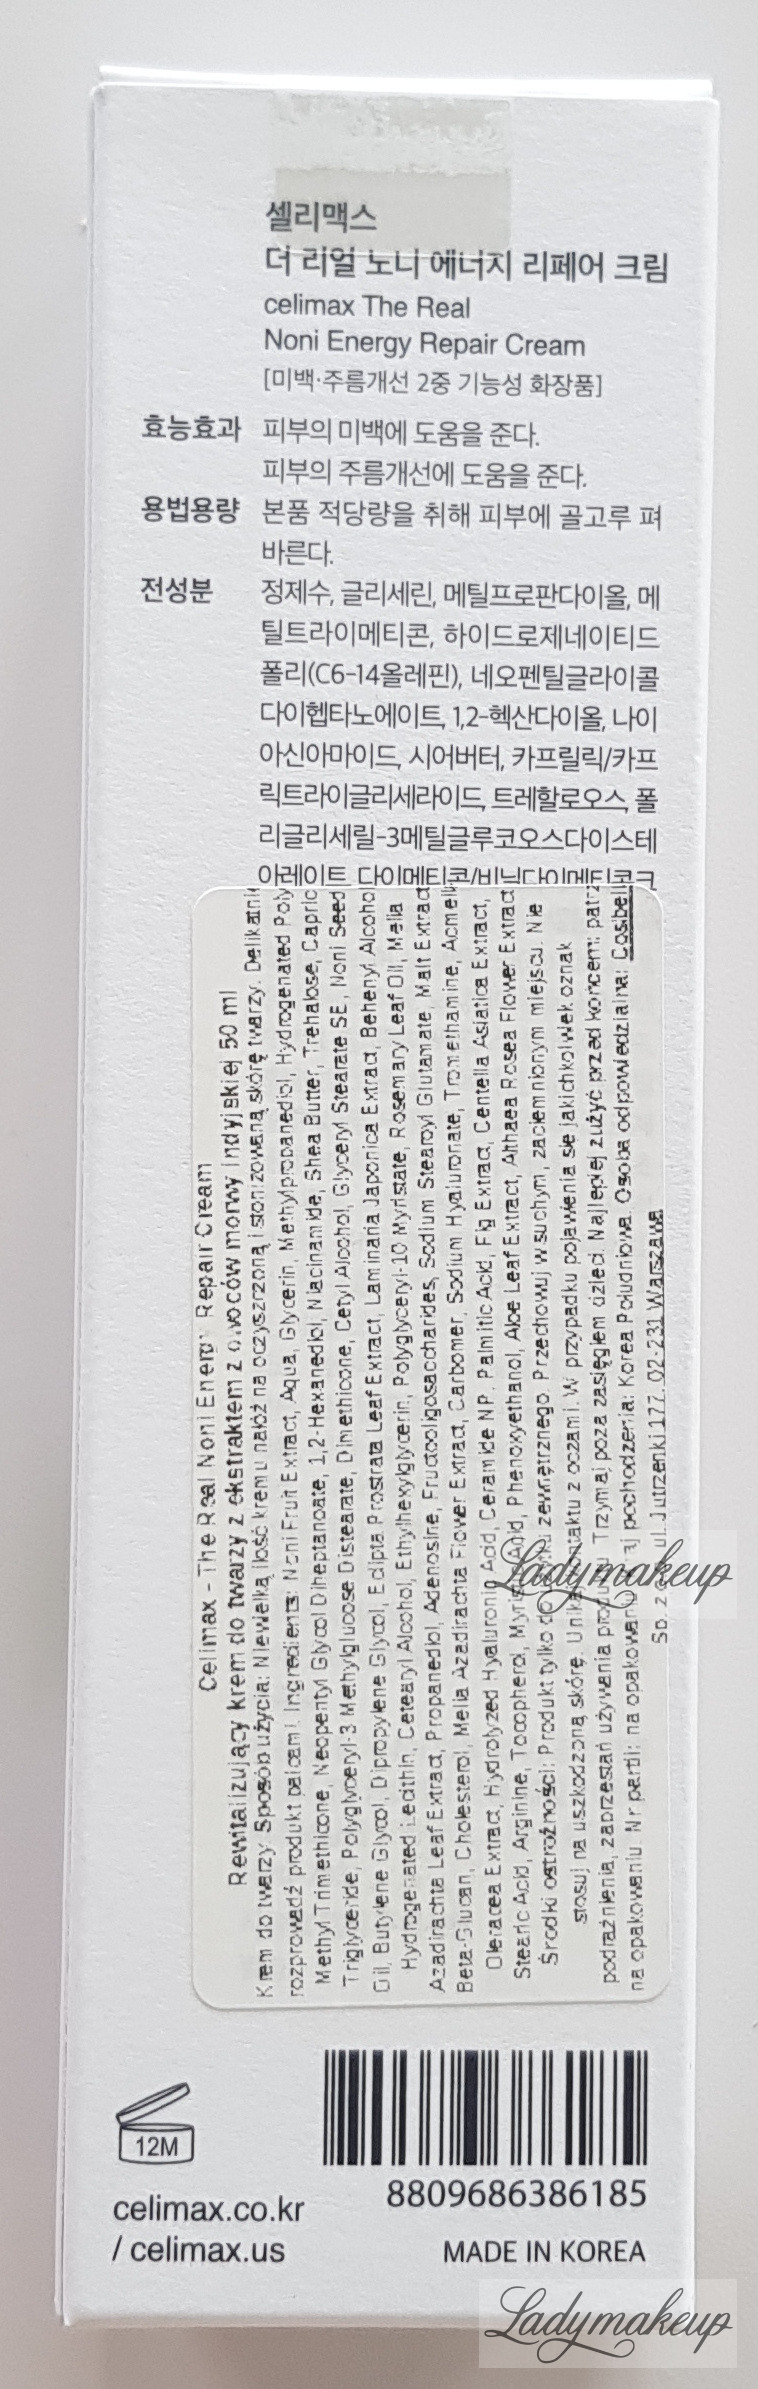 셀리맥스
더 리얼 노니 에너지 리페어 크림
celimax The Real
Noni Energy Repair Cream
[미백·주름개선 2중 기능성 화장품]
효능효과 피부의 미백에 도움을 준다.
피부의 주름개선에 도움을 준다.
용법용량 본품 적당량을 취해 피부에 골고루 펴
바른다.
전성분 정제수, 글리세린, 메틸프로판다이올, 메
틸트라이메티콘, 하이드로제네이티드
폴리(C6-14올레핀), 네오펜틸글라이콜
다이헵타노에이트, 1,2-헥산다이올, 나이
아신아마이드, 시어버터, 카프릴릭/카프
릭트라이글리세라이드, 트레할로오스, 폴
리글리세릴-3메틸글루코오스다이스테
아레이트, 다이메티콘/비닐다이메티콘크
Celimax - The Real Noni Energy Repair Cream
Rewitalizujący krem do twarzy z ekstraktem z owoców morwy indyjskiej 50 ml
Krem do twarzy. Sposób użycia: Niewielką ilość kremu nałóż na oczyszczoną i stonizowaną skórę twarzy. Delikatnie
rozprowadź produkt palcami. Ingredients: Noni Fruit Extract, Aqua, Glycerin, Methylpropanediol, Hydrogenated Poly
Methyl Trimethicone, Neopentyl Glycol Diheptanoate, 1,2-Hexanediol, Niacinamide, Shea Butter, Trehalose, Capric
Triglyceride, Polyglyceryl-3 Methylglucose Distearate, Dimethicone, Cetyl Alcohol, Glyceryl Stearate SE, Noni Seed
Oil, Butylene Glycol, Dipropylene Glycol, Eclipta Prostrata Leaf Extract, Laminaria Japonica Extract, Behenyl Alcoho
Hydrogenated Lecithin, Cetearyl Alcohol, Ethylhexylglycerin, Polyglyceryl-10 Myristate, Rosemary Leaf Oil, Melia
Azadirachta Leaf Extract, Propanediol, Adenosine, Fructooligosaccharides, Sodium Stearoyl Glutamate, Malt Extract
Beta-Glucan, Cholesterol, Melia Azadirachta Flower Extract, Carbomer, Sodium Hyaluronate, Tromethamine, Acmell
Oleracea Extract, Hydrolyzed Hyaluronic Acid, Ceramide NP, Palmitic Acid, Fig Extract, Centella Asiatica Extract,
Stearic Acid, Arginine, Tocopherol, Myristic Acid, Phenoxyethanol, Aloe Leaf Extract, Althaea Rosea Flower Extract
Środki ostrożności: Produkt tylko do użytku zewnętrznego. Przechowuj w suchym, zaciemnionym miejscu. Nie
stosuj na uszkodzoną skórę. Unikaj kontaktu z oczami. W przypadku pojawienia się jakichkolwiek oznak
podrażnienia, zaprzestań używania produktu. Trzymaj poza zasięgiem dzieci. Najlepiej zużyć przed końcem: patrz
na opakowaniu. Nr partii: na opakowaniu. Kraj pochodzenia: Korea Południowa. Osoba odpowiedzialna: Cosibell
Sp. z o.o. ul. Jutrzenki 177, 02-231 Warszawa
12M
8809686386185
celimax.co.kr
/ celimax.us
MADE IN KOREA
Ladymakeup
Ladymakeup